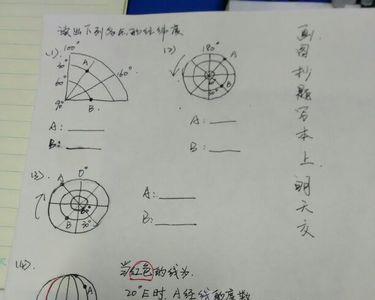 读出下列各点的经纬度
(1) 100°
A
160°
60°
90°
B
A:
B:
(2) 180°
A
B
A:
B:
(3) 0°
A
B
30°
A:
B:
(4)
红色的线为
20°E时,A经线的度数
画图抄题写本上,明天交